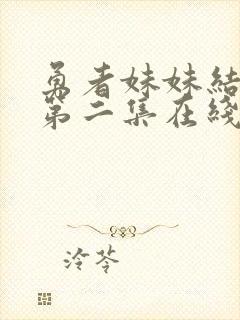 勇者妹妹結
第二集在綫
冷苓